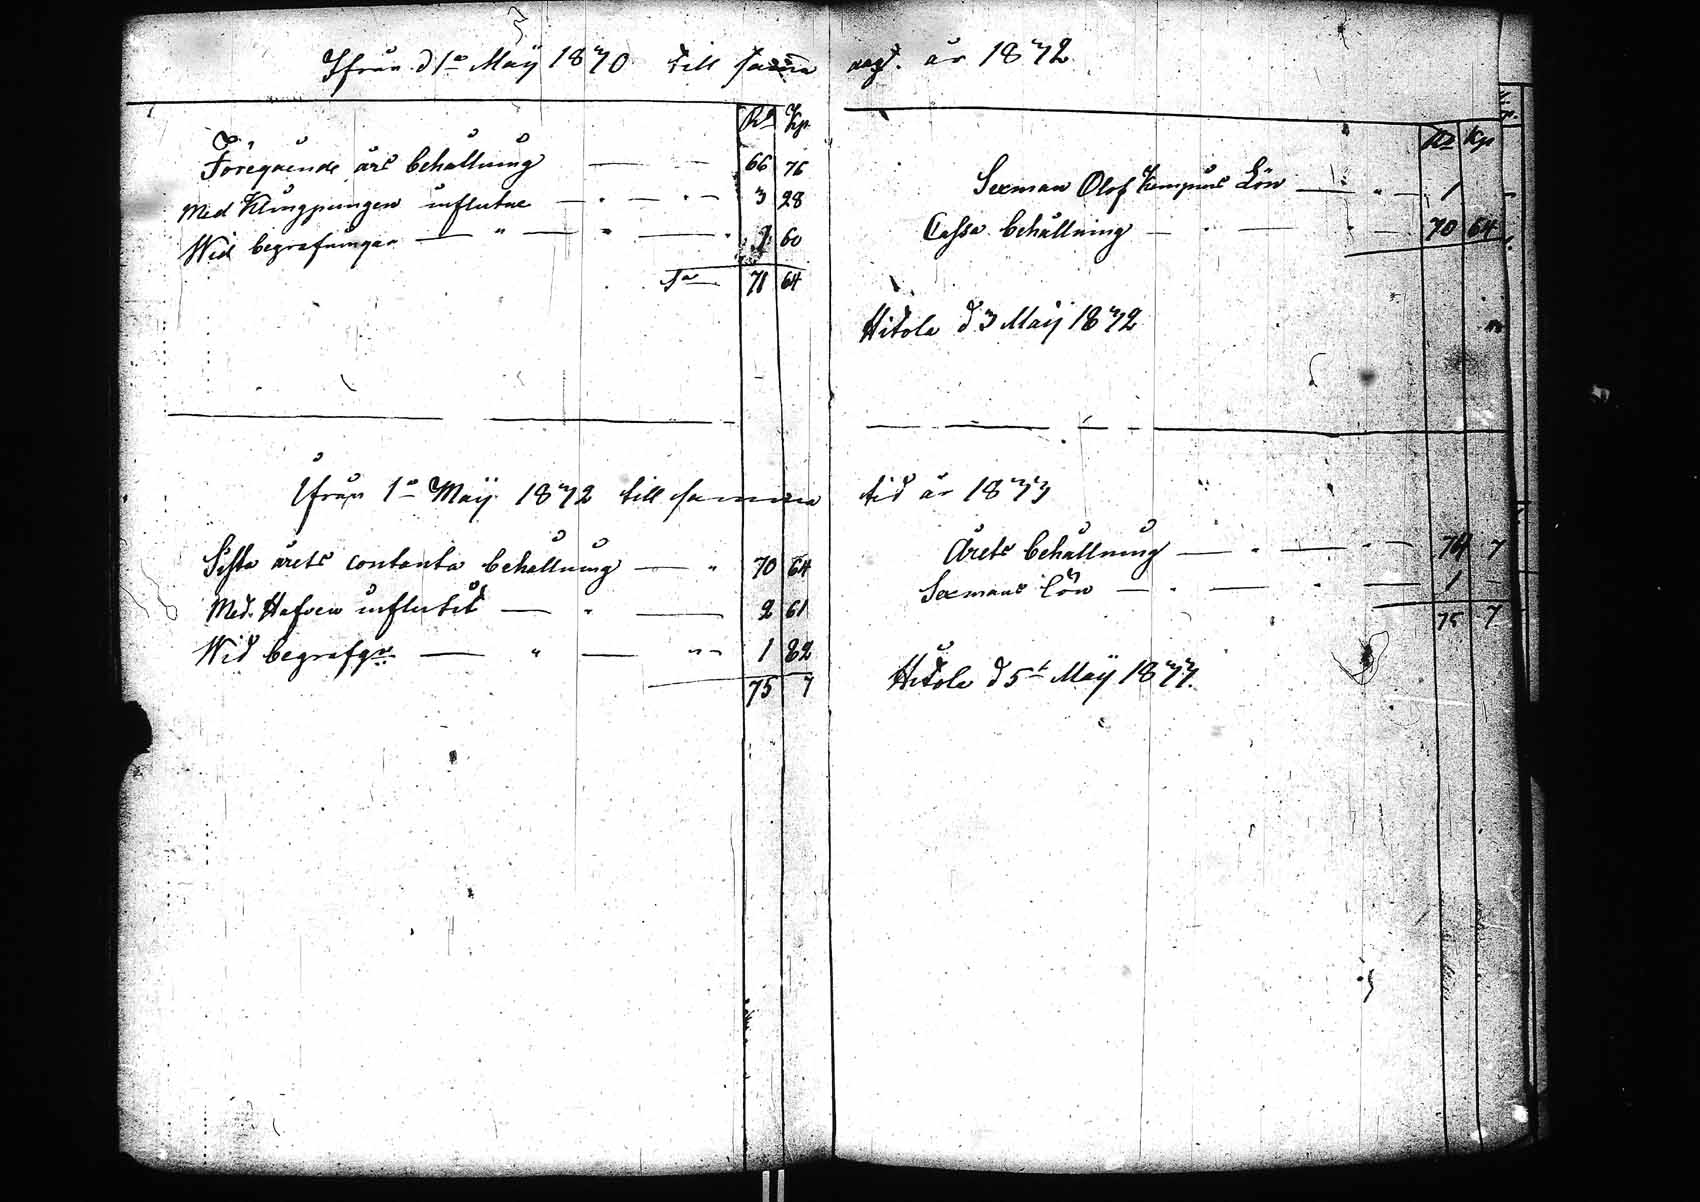 Ifrån d 1a Maÿ 1870 till samma dagt. år 1872
Rb Kp
Föregående års behållning 66 76
Med Klingpungen influtne 3 28
Wid begrafningar 1 60
Sa 71 64
Rb Kp
Sexman Olof Kempins Lön 1 —
Cassa behållning 70 64
Hitola d 3 Maÿ 1872
Ifrån 1a Maÿ 1872 till samma tid år 1873
Sista årets contanta behållning 70 64
Med Hafven influtit 2 61
Wid begrafgr 1 82
75 7
Årets behållning 74 7
Sexmans Lön 1 —
75 7
Hitola d 5t Maÿ 1873.